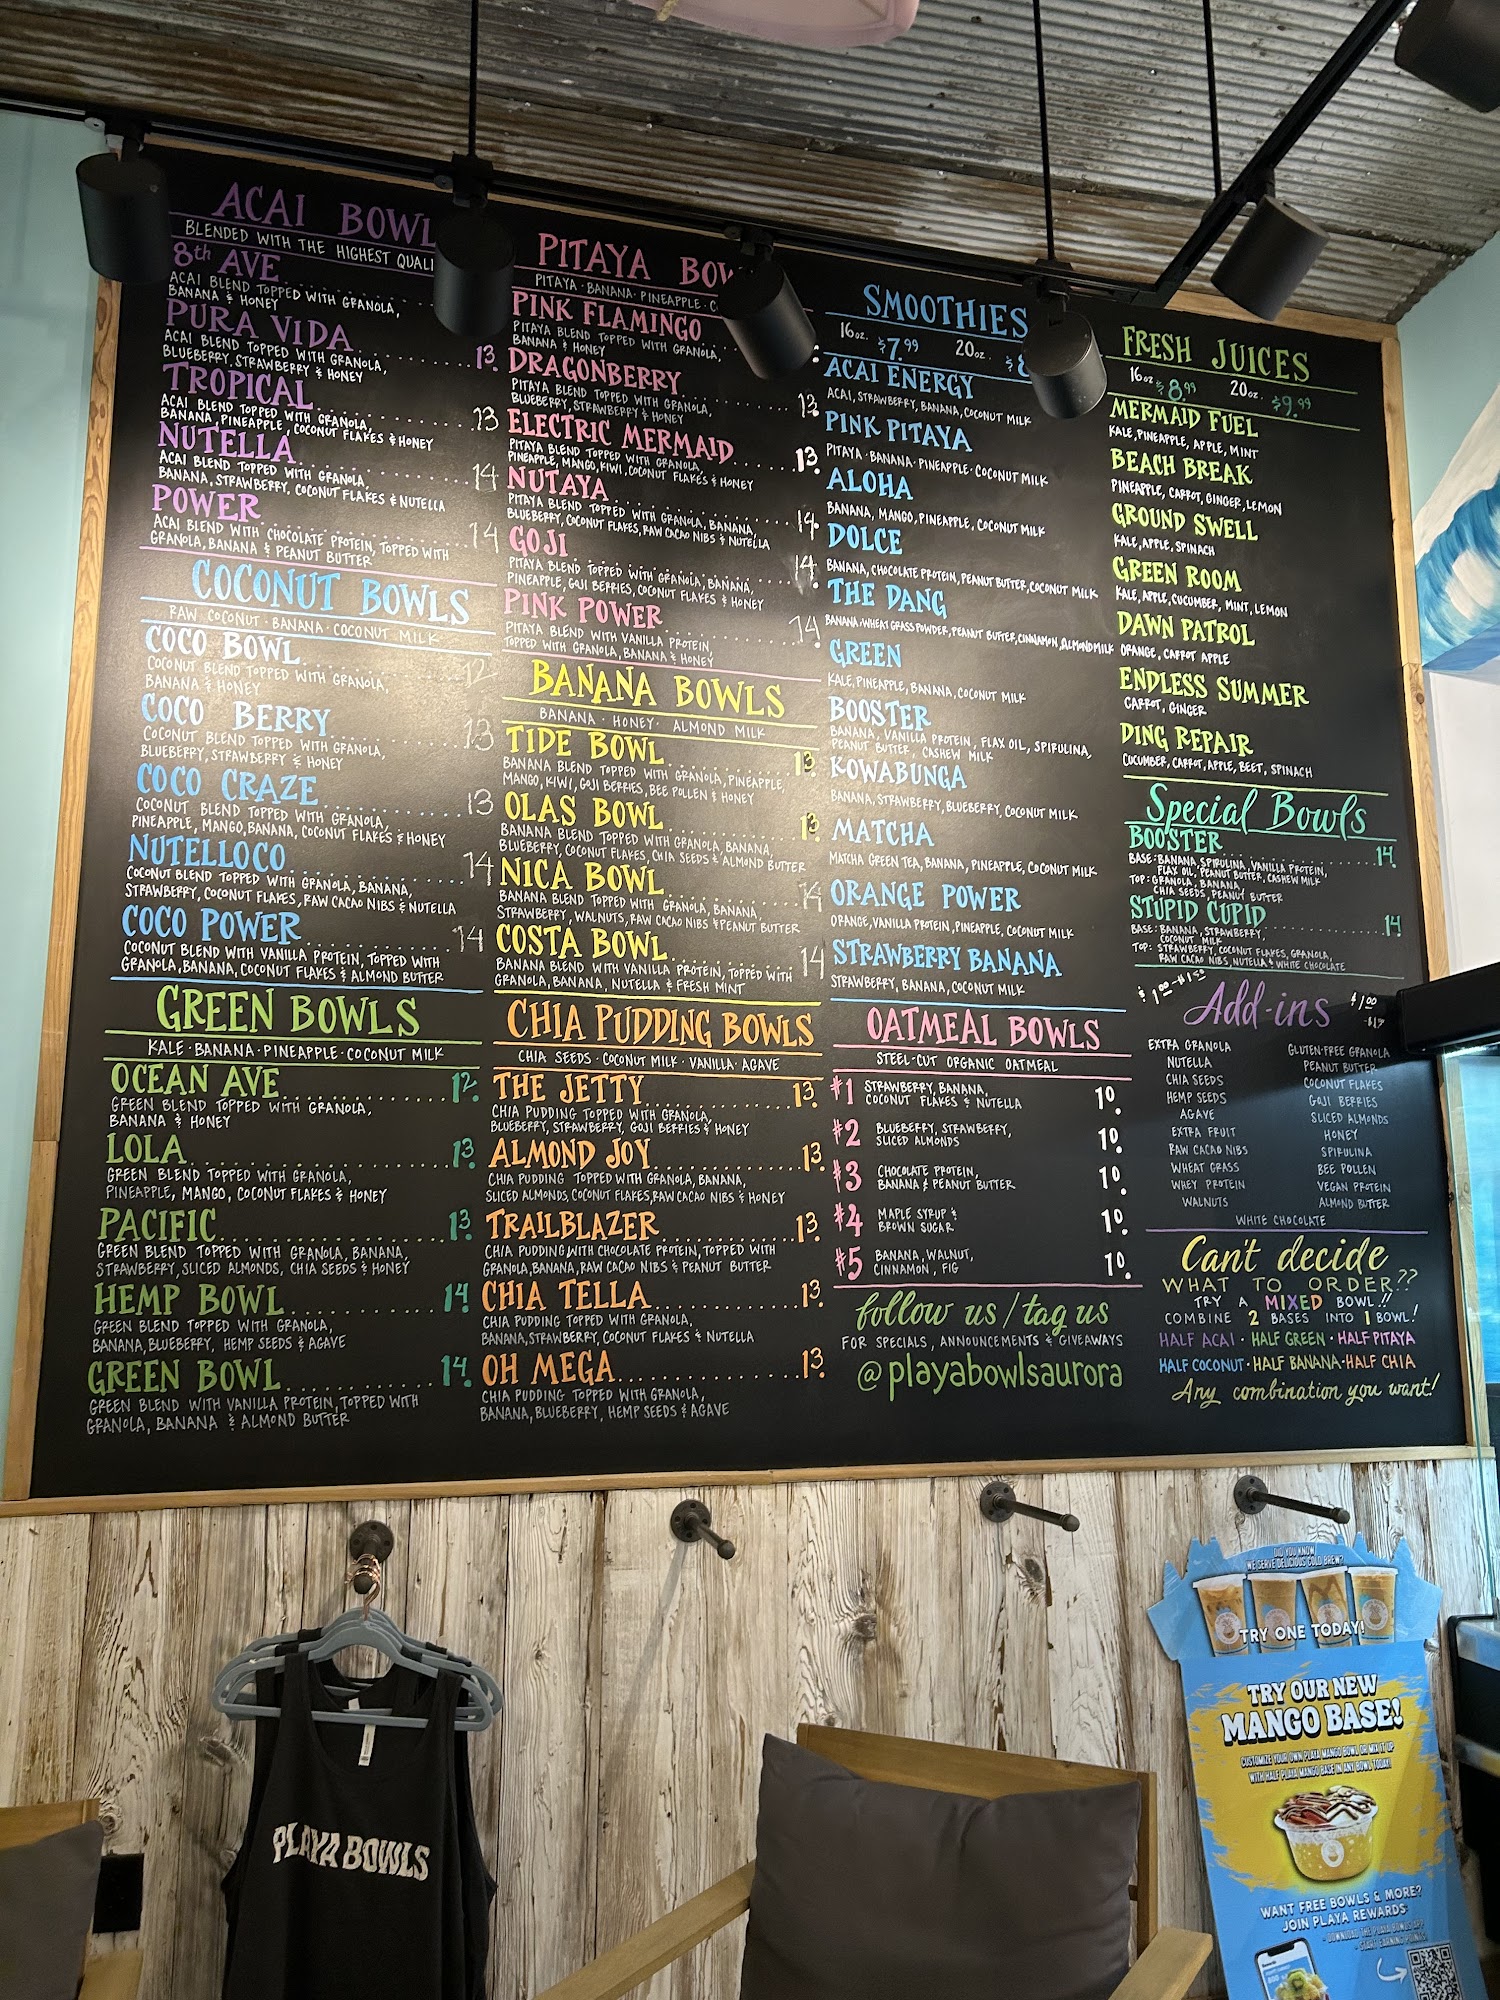 ACAI BOWL
BLENDED WITH THE HIGHEST QUALI
8th AVE
ACAI BLEND TOPPED WITH GRANOLA,
BANANA & HONEY
PURA VIDA 13.
ACAI BLEND TOPPED WITH GRANOLA,
BLUEBERRY, STRAWBERRY & HONEY
TROPICAL 13
ACAI BLEND TOPPED WITH GRANOLA,
BANANA, PINEAPPLE, COCONUT FLAKES & HONEY
NUTELLA 14
ACAI BLEND TOPPED WITH GRANOLA,
BANANA, STRAWBERRY, COCONUT FLAKES & NUTELLA
POWER 14
ACAI BLEND WITH CHOCOLATE PROTEIN, TOPPED WITH
GRANOLA, BANANA & PEANUT BUTTER
COCONUT BOWLS
RAW COCONUT · BANANA · COCONUT MILK
COCO BOWL 12
COCONUT BLEND TOPPED WITH GRANOLA,
BANANA & HONEY
COCO BERRY 13
COCONUT BLEND TOPPED WITH GRANOLA,
BLUEBERRY, STRAWBERRY & HONEY
COCO CRAZE 13
COCONUT BLEND TOPPED WITH GRANOLA,
PINEAPPLE, MANGO, BANANA, COCONUT FLAKES & HONEY
NUTELLOCO 14
COCONUT BLEND TOPPED WITH GRANOLA, BANANA,
STRAWBERRY, COCONUT FLAKES, RAW CACAO NIBS & NUTELLA
COCO POWER 14
COCONUT BLEND WITH VANILLA PROTEIN, TOPPED WITH
GRANOLA, BANANA, COCONUT FLAKES & ALMOND BUTTER
GREEN BOWLS
KALE · BANANA · PINEAPPLE · COCONUT MILK
OCEAN AVE 12.
GREEN BLEND TOPPED WITH GRANOLA,
BANANA & HONEY
LOLA 13.
GREEN BLEND TOPPED WITH GRANOLA,
PINEAPPLE, MANGO, COCONUT FLAKES & HONEY
PACIFIC 13.
GREEN BLEND TOPPED WITH GRANOLA, BANANA,
STRAWBERRY, SLICED ALMONDS, CHIA SEEDS & HONEY
HEMP BOWL 14.
GREEN BLEND TOPPED WITH GRANOLA,
BANANA, BLUEBERRY, HEMP SEEDS & AGAVE
GREEN BOWL 14.
GREEN BLEND WITH VANILLA PROTEIN, TOPPED WITH
GRANOLA, BANANA & ALMOND BUTTER
PITAYA BOW
PITAYA · BANANA · PINEAPPLE · C
PINK FLAMINGO
PITAYA BLEND TOPPED WITH GRANOLA,
BANANA & HONEY
DRAGONBERRY 13.
PITAYA BLEND TOPPED WITH GRANOLA,
BLUEBERRY, STRAWBERRY & HONEY
ELECTRIC MERMAID 13.
PITAYA BLEND TOPPED WITH GRANOLA,
PINEAPPLE, MANGO, KIWI, COCONUT FLAKES & HONEY
NUTAYA 14.
PITAYA BLEND TOPPED WITH GRANOLA, BANANA,
BLUEBERRY, COCONUT FLAKES, RAW CACAO NIBS & NUTELLA
GOJI 14.
PITAYA BLEND TOPPED WITH GRANOLA, BANANA,
PINEAPPLE, GOJI BERRIES, COCONUT FLAKES & HONEY
PINK POWER 14
PITAYA BLEND WITH VANILLA PROTEIN,
TOPPED WITH GRANOLA, BANANA & HONEY
BANANA BOWLS
BANANA · HONEY · ALMOND MILK
TIDE BOWL 13.
BANANA BLEND TOPPED WITH GRANOLA, PINEAPPLE,
MANGO, KIWI, GOJI BERRIES, BEE POLLEN & HONEY
OLAS BOWL 13.
BANANA BLEND TOPPED WITH GRANOLA, BANANA,
BLUEBERRY, COCONUT FLAKES, CHIA SEEDS & ALMOND BUTTER
NICA BOWL 14
BANANA BLEND TOPPED WITH GRANOLA, BANANA,
STRAWBERRY, WALNUTS, RAW CACAO NIBS & PEANUT BUTTER
COSTA BOWL 14
BANANA BLEND WITH VANILLA PROTEIN, TOPPED WITH
GRANOLA, BANANA, NUTELLA & FRESH MINT
CHIA PUDDING BOWLS
CHIA SEEDS · COCONUT MILK · VANILLA · AGAVE
THE JETTY 13.
CHIA PUDDING TOPPED WITH GRANOLA,
BLUEBERRY, STRAWBERRY, GOJI BERRIES & HONEY
ALMOND JOY 13.
CHIA PUDDING TOPPED WITH GRANOLA, BANANA,
SLICED ALMONDS, COCONUT FLAKES, RAW CACAO NIBS & HONEY
TRAILBLAZER 13.
CHIA PUDDING WITH CHOCOLATE PROTEIN, TOPPED WITH
GRANOLA, BANANA, RAW CACAO NIBS & PEANUT BUTTER
CHIA TELLA 13.
CHIA PUDDING TOPPED WITH GRANOLA,
BANANA, STRAWBERRY, COCONUT FLAKES & NUTELLA
OH MEGA 13.
CHIA PUDDING TOPPED WITH GRANOLA,
BANANA, BLUEBERRY, HEMP SEEDS & AGAVE
SMOOTHIES
16oz. $7.99 20oz. $8
ACAI ENERGY
ACAI, STRAWBERRY, BANANA, COCONUT MILK
PINK PITAYA
PITAYA · BANANA · PINEAPPLE · COCONUT MILK
ALOHA
BANANA, MANGO, PINEAPPLE, COCONUT MILK
DOLCE
BANANA, CHOCOLATE PROTEIN, PEANUT BUTTER, COCONUT MILK
THE DANG
BANANA, WHEAT GRASS POWDER, PEANUT BUTTER, CINNAMON, ALMOND MILK
GREEN
KALE, PINEAPPLE, BANANA, COCONUT MILK
BOOSTER
BANANA, VANILLA PROTEIN, FLAX OIL, SPIRULINA,
PEANUT BUTTER, CASHEW MILK
KOWABUNGA
BANANA, STRAWBERRY, BLUEBERRY, COCONUT MILK
MATCHA
MATCHA GREEN TEA, BANANA, PINEAPPLE, COCONUT MILK
ORANGE POWER
ORANGE, VANILLA PROTEIN, PINEAPPLE, COCONUT MILK
STRAWBERRY BANANA
STRAWBERRY, BANANA, COCONUT MILK
OATMEAL BOWLS
STEEL-CUT ORGANIC OATMEAL
#1 STRAWBERRY, BANANA, 10.
COCONUT FLAKES & NUTELLA
#2 BLUEBERRY, STRAWBERRY, 10.
SLICED ALMONDS
#3 CHOCOLATE PROTEIN, 10.
BANANA & PEANUT BUTTER
#4 MAPLE SYRUP & 10.
BROWN SUGAR
#5 BANANA, WALNUT, 10.
CINNAMON, FIG
follow us / tag us
FOR SPECIALS, ANNOUNCEMENTS & GIVEAWAYS
@playabowlsaurora
FRESH JUICES
16oz $8.99 20oz. $9.99
MERMAID FUEL
KALE, PINEAPPLE, APPLE, MINT
BEACH BREAK
PINEAPPLE, CARROT, GINGER, LEMON
GROUND SWELL
KALE, APPLE, SPINACH
GREEN ROOM
KALE, APPLE, CUCUMBER, MINT, LEMON
DAWN PATROL
ORANGE, CARROT APPLE
ENDLESS SUMMER
CARROT, GINGER
DING REPAIR
CUCUMBER, CARROT, APPLE, BEET, SPINACH
Special Bowls
BOOSTER 14.
BASE: BANANA, SPIRULINA, VANILLA PROTEIN,
FLAX OIL, PEANUT BUTTER, CASHEW MILK
TOP: GRANOLA, BANANA,
CHIA SEEDS, PEANUT BUTTER
STUPID CUPID 14.
BASE: BANANA, STRAWBERRY,
COCONUT MILK
TOP: STRAWBERRY, COCONUT FLAKES, GRANOLA,
RAW CACAO NIBS, NUTELLA & WHITE CHOCOLATE
$1.00-$1.50 Add-ins $1.00
EXTRA GRANOLA GLUTEN-FREE GRANOLA
NUTELLA PEANUT BUTTER
CHIA SEEDS COCONUT FLAKES
HEMP SEEDS GOJI BERRIES
AGAVE SLICED ALMONDS
EXTRA FRUIT HONEY
RAW CACAO NIBS SPIRULINA
WHEAT GRASS BEE POLLEN
WHEY PROTEIN VEGAN PROTEIN
WALNUTS ALMOND BUTTER
WHITE CHOCOLATE
Can't decide
WHAT TO ORDER??
TRY A MIXED BOWL!!
COMBINE 2 BASES INTO 1 BOWL!
HALF ACAI · HALF GREEN · HALF PITAYA
HALF COCONUT · HALF BANANA · HALF CHIA
Any combination you want!
PLAYA BOWLS
DID YOU KNOW
WE SERVE DELICIOUS COLD BREW?
TRY ONE TODAY!
TRY OUR NEW
MANGO BASE!
CUSTOMIZE YOUR OWN PLAYA MANGO BOWL OR MIX IT UP
WITH HALF PLAYA MANGO BASE IN ANY BOWL TODAY!
WANT FREE BOWLS & MORE?
JOIN PLAYA REWARDS
- DOWNLOAD THE PLAYA BOWLS APP
- START EARNING POINTS